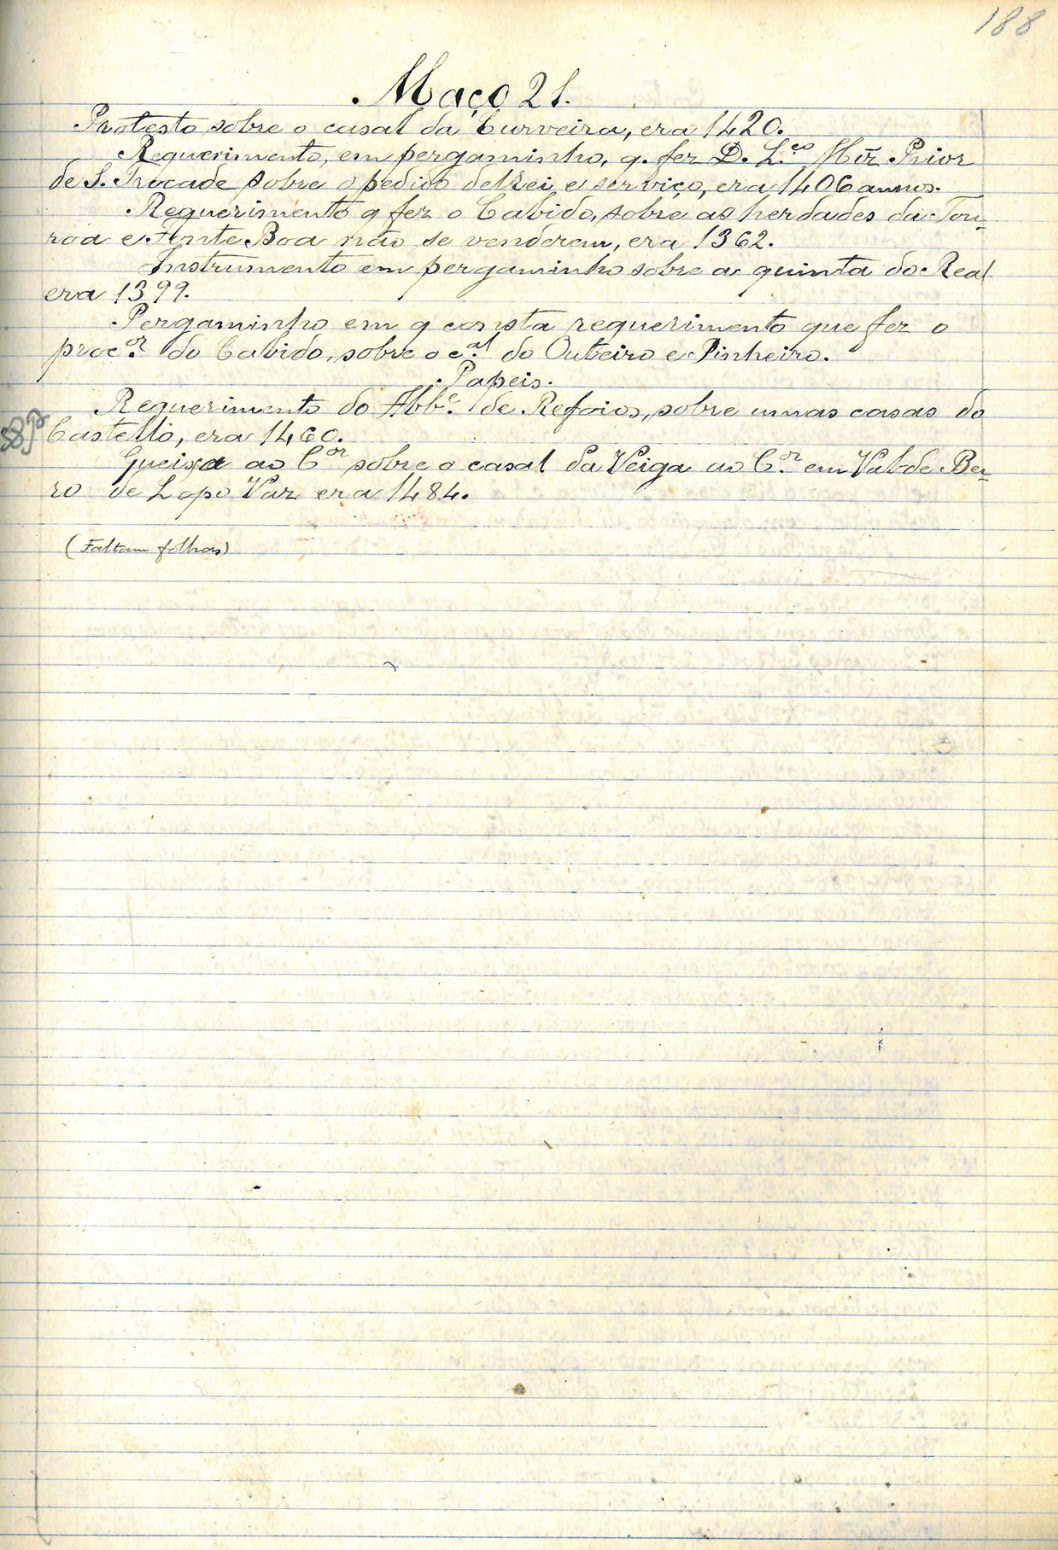 188
Maço 21.
Protesto sobre o casal da Curveira, era 1420.
Requerimento, em pergaminho, q. fez D. L.ço Miz Prior
de S. Trocade sobre o pedido delRei e serviço, era 1406 annos.
Requerimento q fez o Cabido, sobre as herdades da Tou-
roa e Fonte Boa não se venderem, era 1362.
Instrumento em pergaminho sobre a quinta do Real
era 1399.
Pergaminho em q consta requerimento que fez o
proc.or do Cabido, sobre o c.al do Outeiro e Pinheiro.
Papeis.
Requerimento do Abb.e de Refoios, sobre umas casas do
Castello, era 1460.
Queixa ao C.or sobre o casal da Veiga ao C.or em Val de Be-
ro de Lopo Vaz era 1484.
(Faltam folhas)